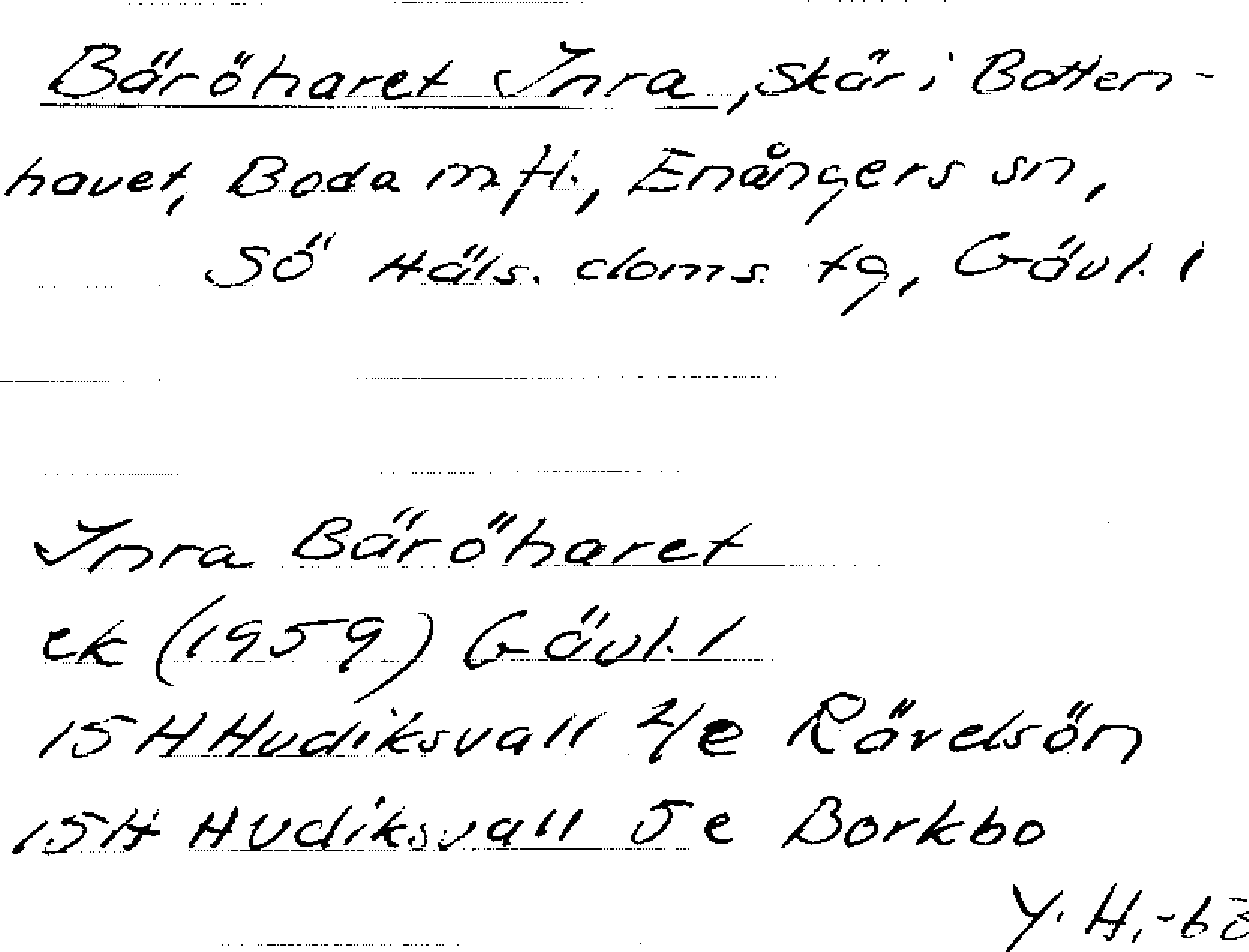 Bäröharet Inra, skär i Botten-
havet, Boda m.fl., Enångers sn,
Sö Häls. doms. tg, Gävl. l
Inra Bäröharet
ek (1959) Gävl. l
15H Hudiksvall 4e Rävelsön
15H Hudiksvall 5e Borkbo
Y. H.